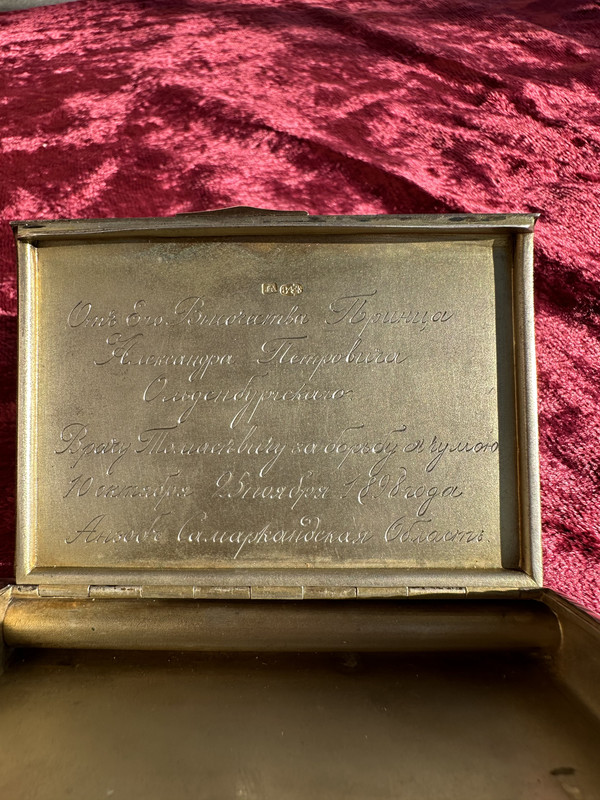 ГА 84
Отъ Его Высочества Принца
Александра Петровича
Ольденбургскаго
Врачу Томасевичу за борьбу съ чумою
10 октября 25 ноября 1898 года
Анзобъ Самаркандская Область.